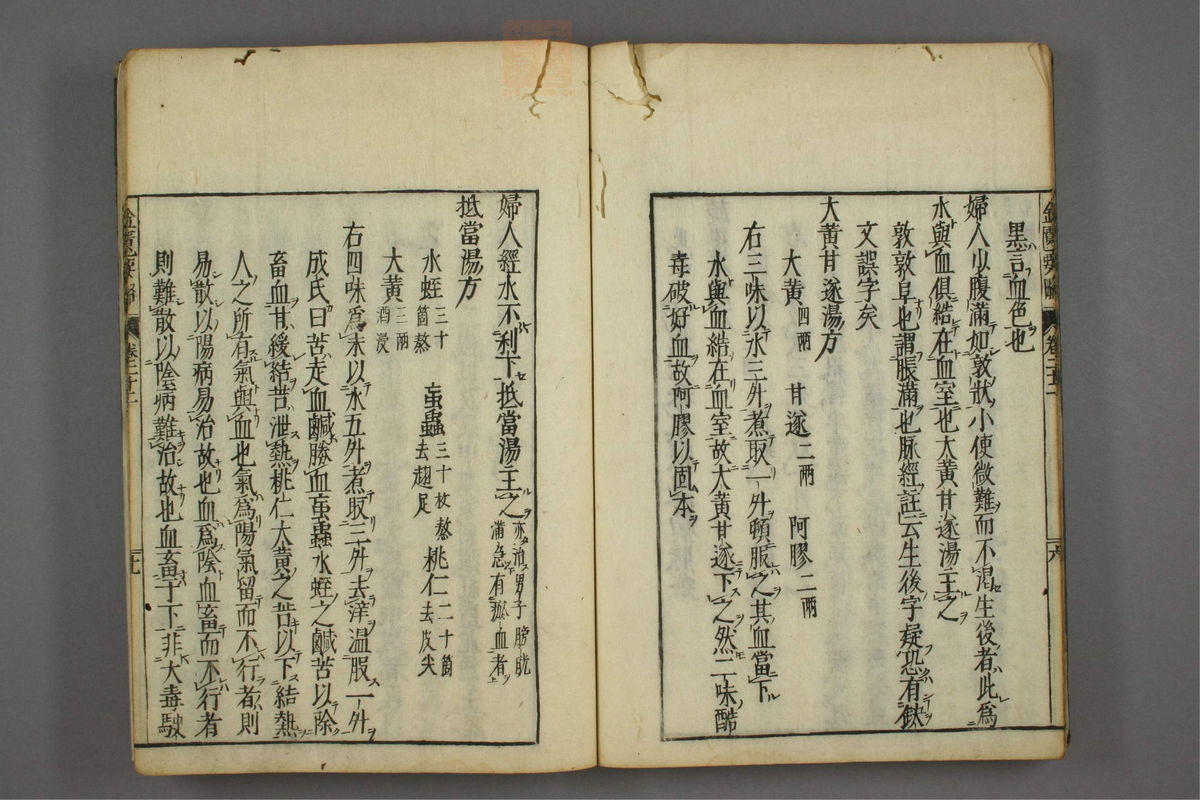 黒言血色也
婦人少腹滿如敦狀小便微難而不渇生後者此爲
水與血俱結在血室也大黄甘遂湯主之
敦敦阜也謂脹滿也脉經註云生後字疑恐有缺
文誤字矣
大黄甘遂湯方
大黄四兩 甘遂二兩 阿膠二兩
右三味以水三升煮取一升頓服之其血當下
水與血結在血室故大黄甘遂下之然二味酷
毒破好血故阿膠以固本
金匱要略 卷二十二 六
婦人經水不利下抵當湯主之亦治男子膀胱滿急有瘀血者
抵當湯方
水蛭三十箇熬 䖟蟲三十枚熬去翅足 桃仁二十箇去皮尖
大黄三兩酒浸
右四味爲末以水五升煮取三升去滓温服一升
成氏曰苦走血鹹勝血䖟蟲水蛭之鹹苦以除
畜血甘緩結苦泄熱桃仁大黄之苦以下結熱
人之所有氣與血也氣爲陽氣留而不行者則
易散以陽病易治故也血爲陰血畜而不行者
則難散以陰病難治故也血畜于下非大毒駛
金匱要略 卷二十二 七